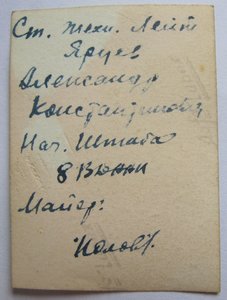 Ст. техн. Лейт
Ярцев
Александр
Константинович
Нач. Штаба
Майор: